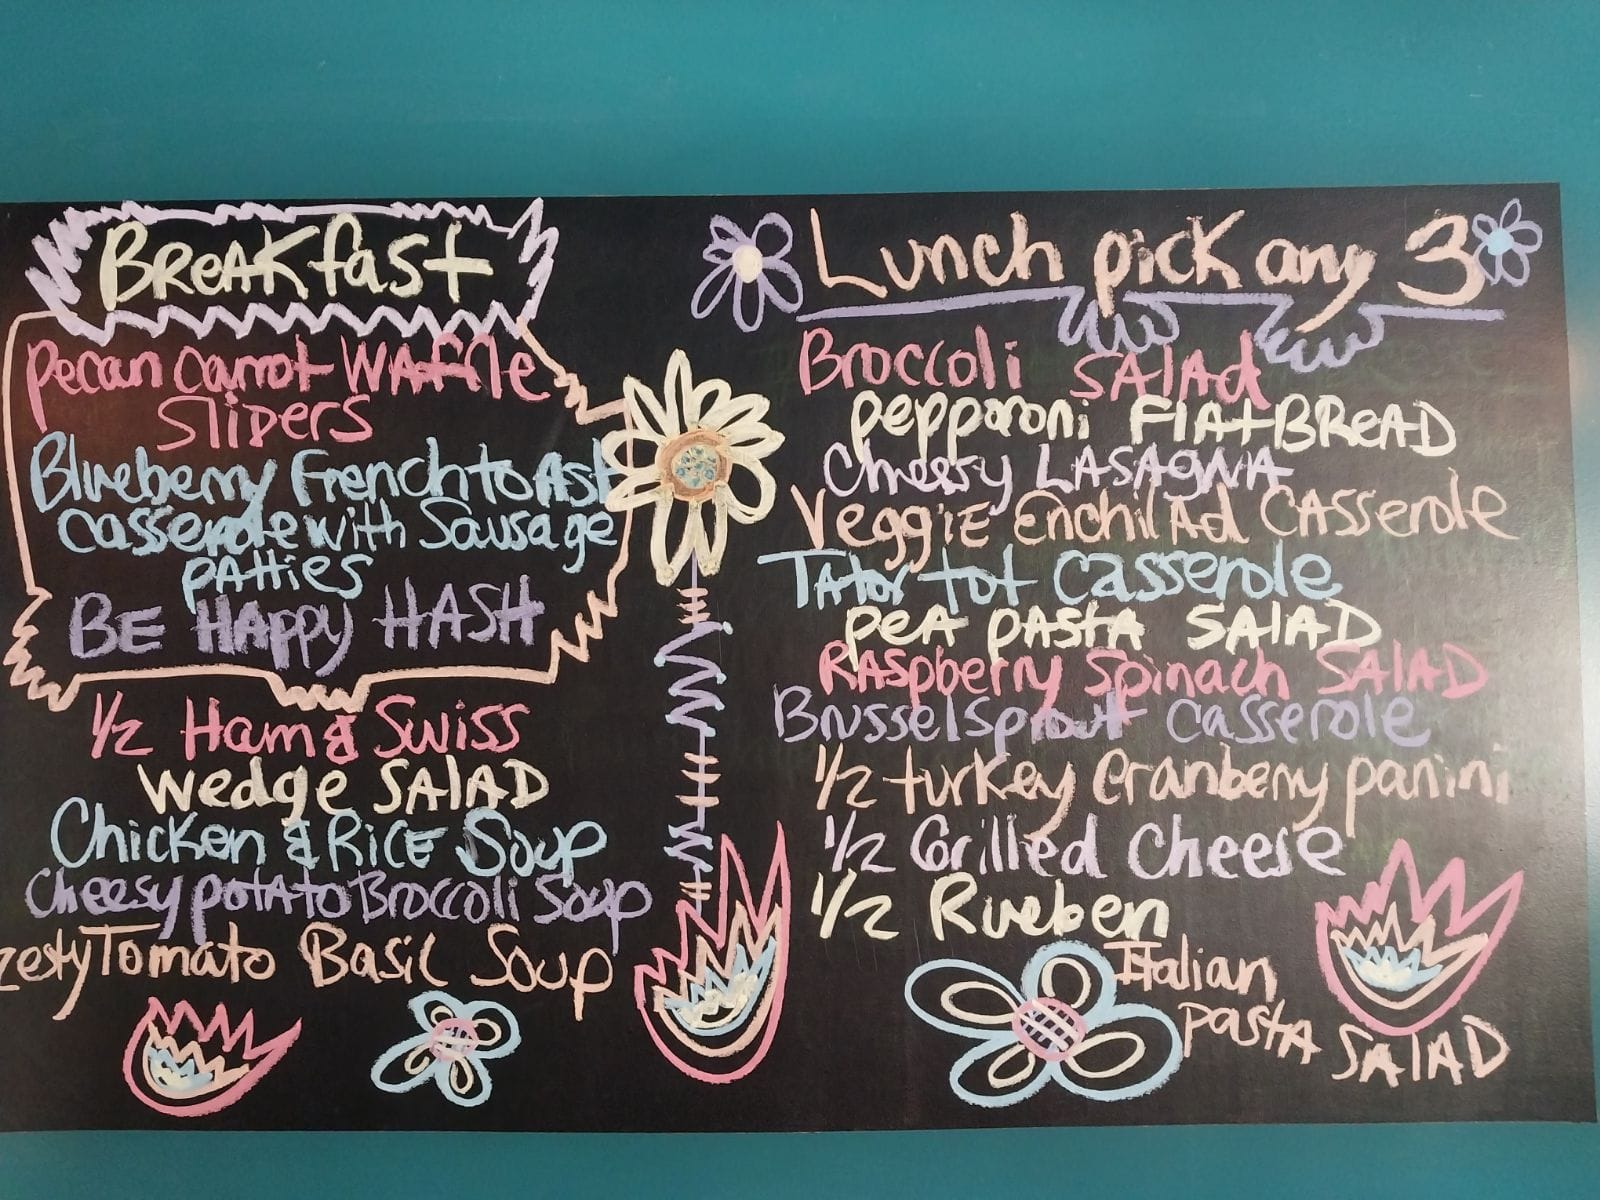 Breakfast
Pecan Carrot Waffle
Sliders
Blueberry French toast
Casserole with Sausage
patties
BE HAPPY HASH
1/2 Ham & Swiss
wedge SALAD
Chicken & RICE Soup
Cheesy potato Broccoli Soup
zesty Tomato Basil Soup
Lunch pick any 3
Broccoli SALAd
pepparoni FlatBREAD
Cheesy LASAGNA
VeggiE EnchilAd CASserole
Tator tot Casserole
peA pASta SALAD
RASpberry Spinach SALAD
Brusselsprout Casserole
1/2 turkey Cranberry panini
1/2 Grilled Cheese
1/2 Rueben
Italian
pastA SALAD